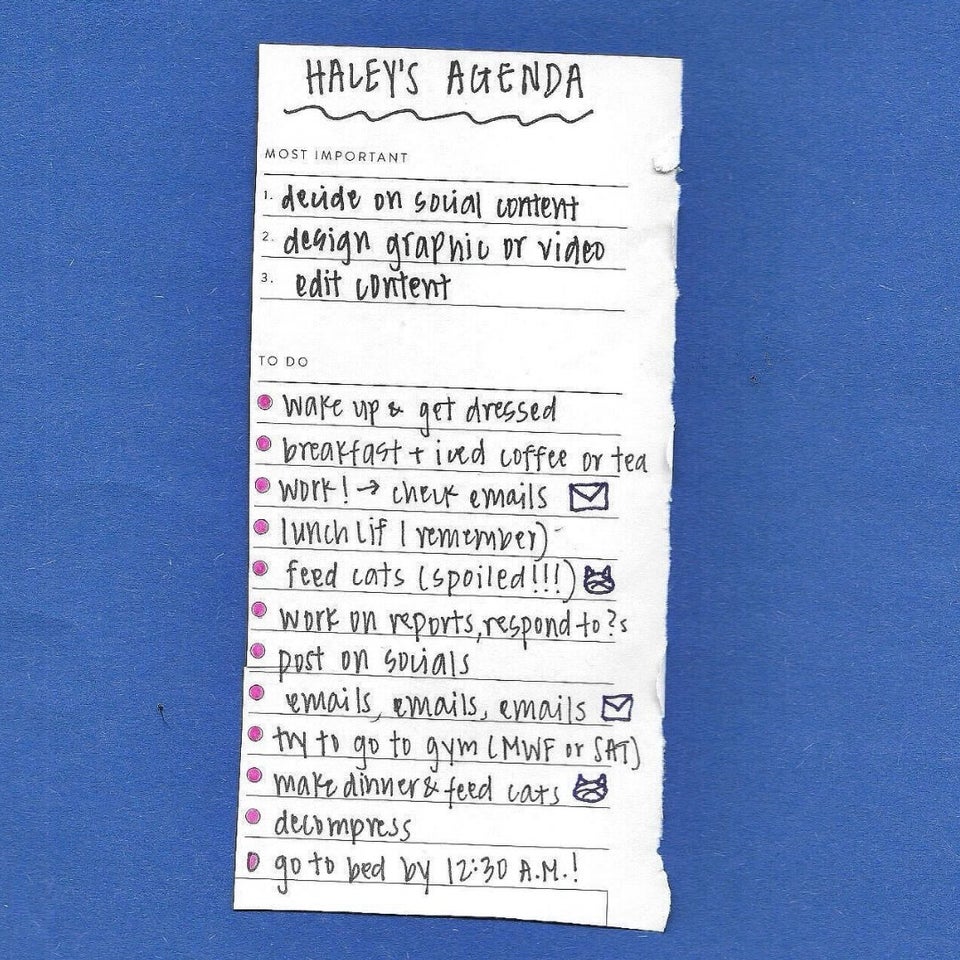 HALEY'S AGENDA
MOST IMPORTANT
1. decide on social content
2. design graphic or video
3. edit content
TO DO
wake up & get dressed
breakfast + iced coffee or tea
work! → check emails
lunch (if I remember)
feed cats (spoiled!!!)
work on reports, respond to ?s
post on socials
emails, emails, emails
try to go to gym (MWF or SAT)
make dinner & feed cats
decompress
go to bed by 12:30 A.M.!